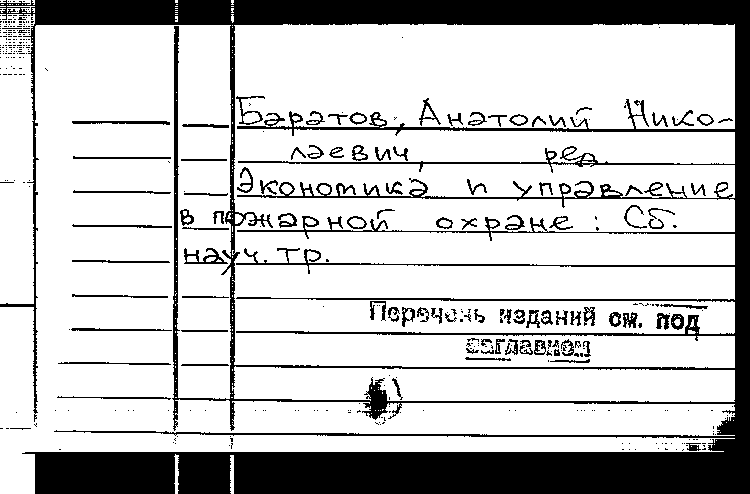 Баратов, Анатолий Нико-
лаевич, ред.
Экономика и управление
в пожарной охране : Сб.
науч. тр.
Перечень изданий см. под
заглавием